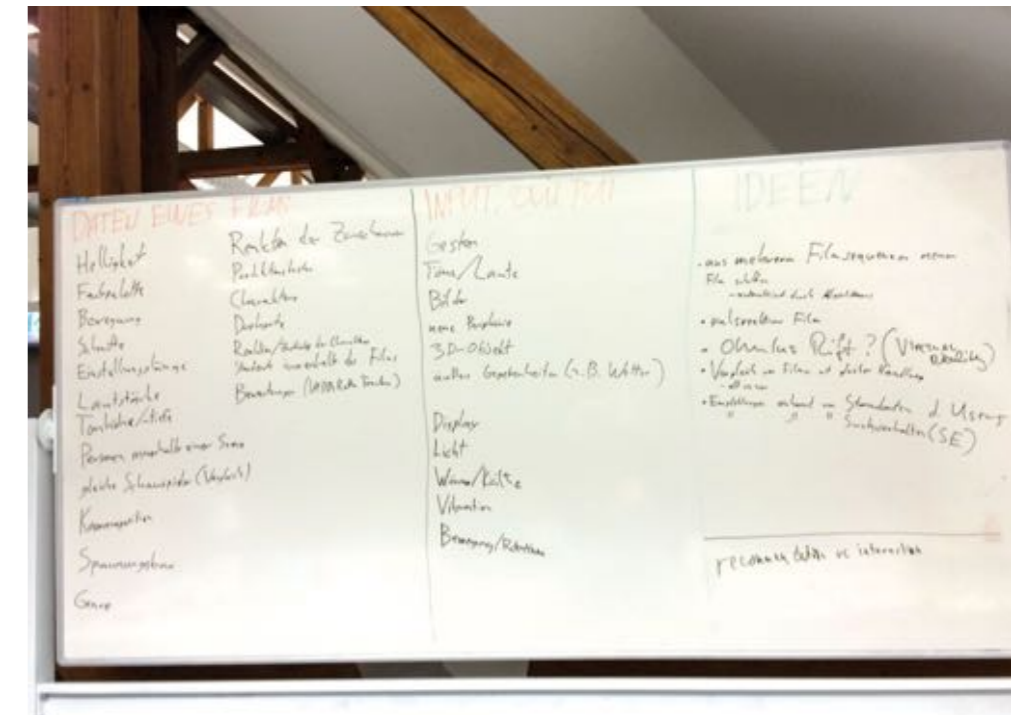 DATEN EINES FILMS
Helligkeit
Farbpalette
Bewegung
Schnitte
Einstellungslänge
Lautstärke
Tonhöhe/-tiefe
Personen innerhalb einer Szene
gleiche Schauspieler (Vergleich)
Kameraposition
Spannungsbogen
Genre
Reaktion der Zuschauer
Produktionskosten
Charaktere
Drehorte
Standorte innerhalb des Films
INPUT, OUTPUT
Gesten
Töne/Laute
Bilder
neue Peripherie
3D-Objekt
äußere Gegebenheiten (z.B. Wetter)
Display
Licht
Wärme/Kälte
Vibration
Bewegung/Rotation
IDEEN
- aus mehreren Filmsequenzen neuen
Film
Film
• Ohulus Rift? (Virtual
Reality)
• Vergleich von Filmen mit gleicher Handlung
• Empfehlungen anhand von Standorten d. Users
" " " Suchverhalten (SE)
recommendation vs interaction